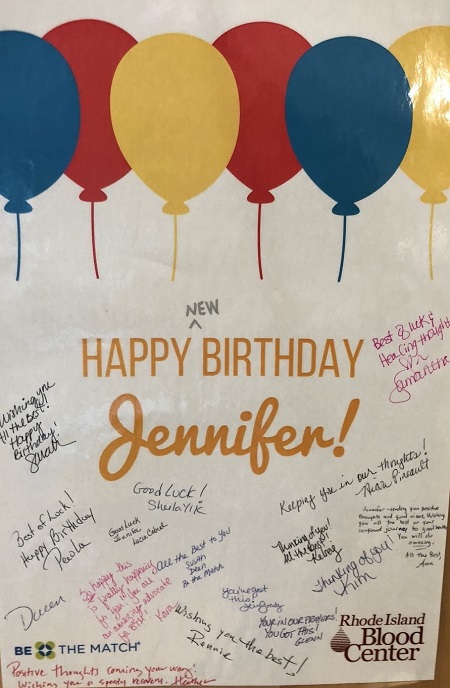 NEW
HAPPY BIRTHDAY
Jennifer!
Best of luck &
Healing thoughts
Samantha
Wishing you
all the best!
Happy
Birthday!
Sarah
Good Luck!
Sheila
Keeping you in our thoughts!
Best of Luck!
Happy Birthday
Paula
Good Luck
Jennifer
Jennifer - sending you positive
thoughts and good vibes. Wishing
you all the best on your
continued journey to good health.
You will do
amazing.
All the Best,
Ann
Thinking of you!
All the Best!
Kelsey
Thinking of you!
Kim
All the Best to You
Susan
Dean
Be the Match
So happy this
is finally happening
for you! You are
an amazing advocate
You've got
this!
Your in our prayers!
You got this!
Glenn
Wishing you the best!
Ronnie
Daren
BE THE MATCH®
Rhode Island
Blood
Center
Positive thoughts coming your way!
Wishing you a speedy recovery. Heather